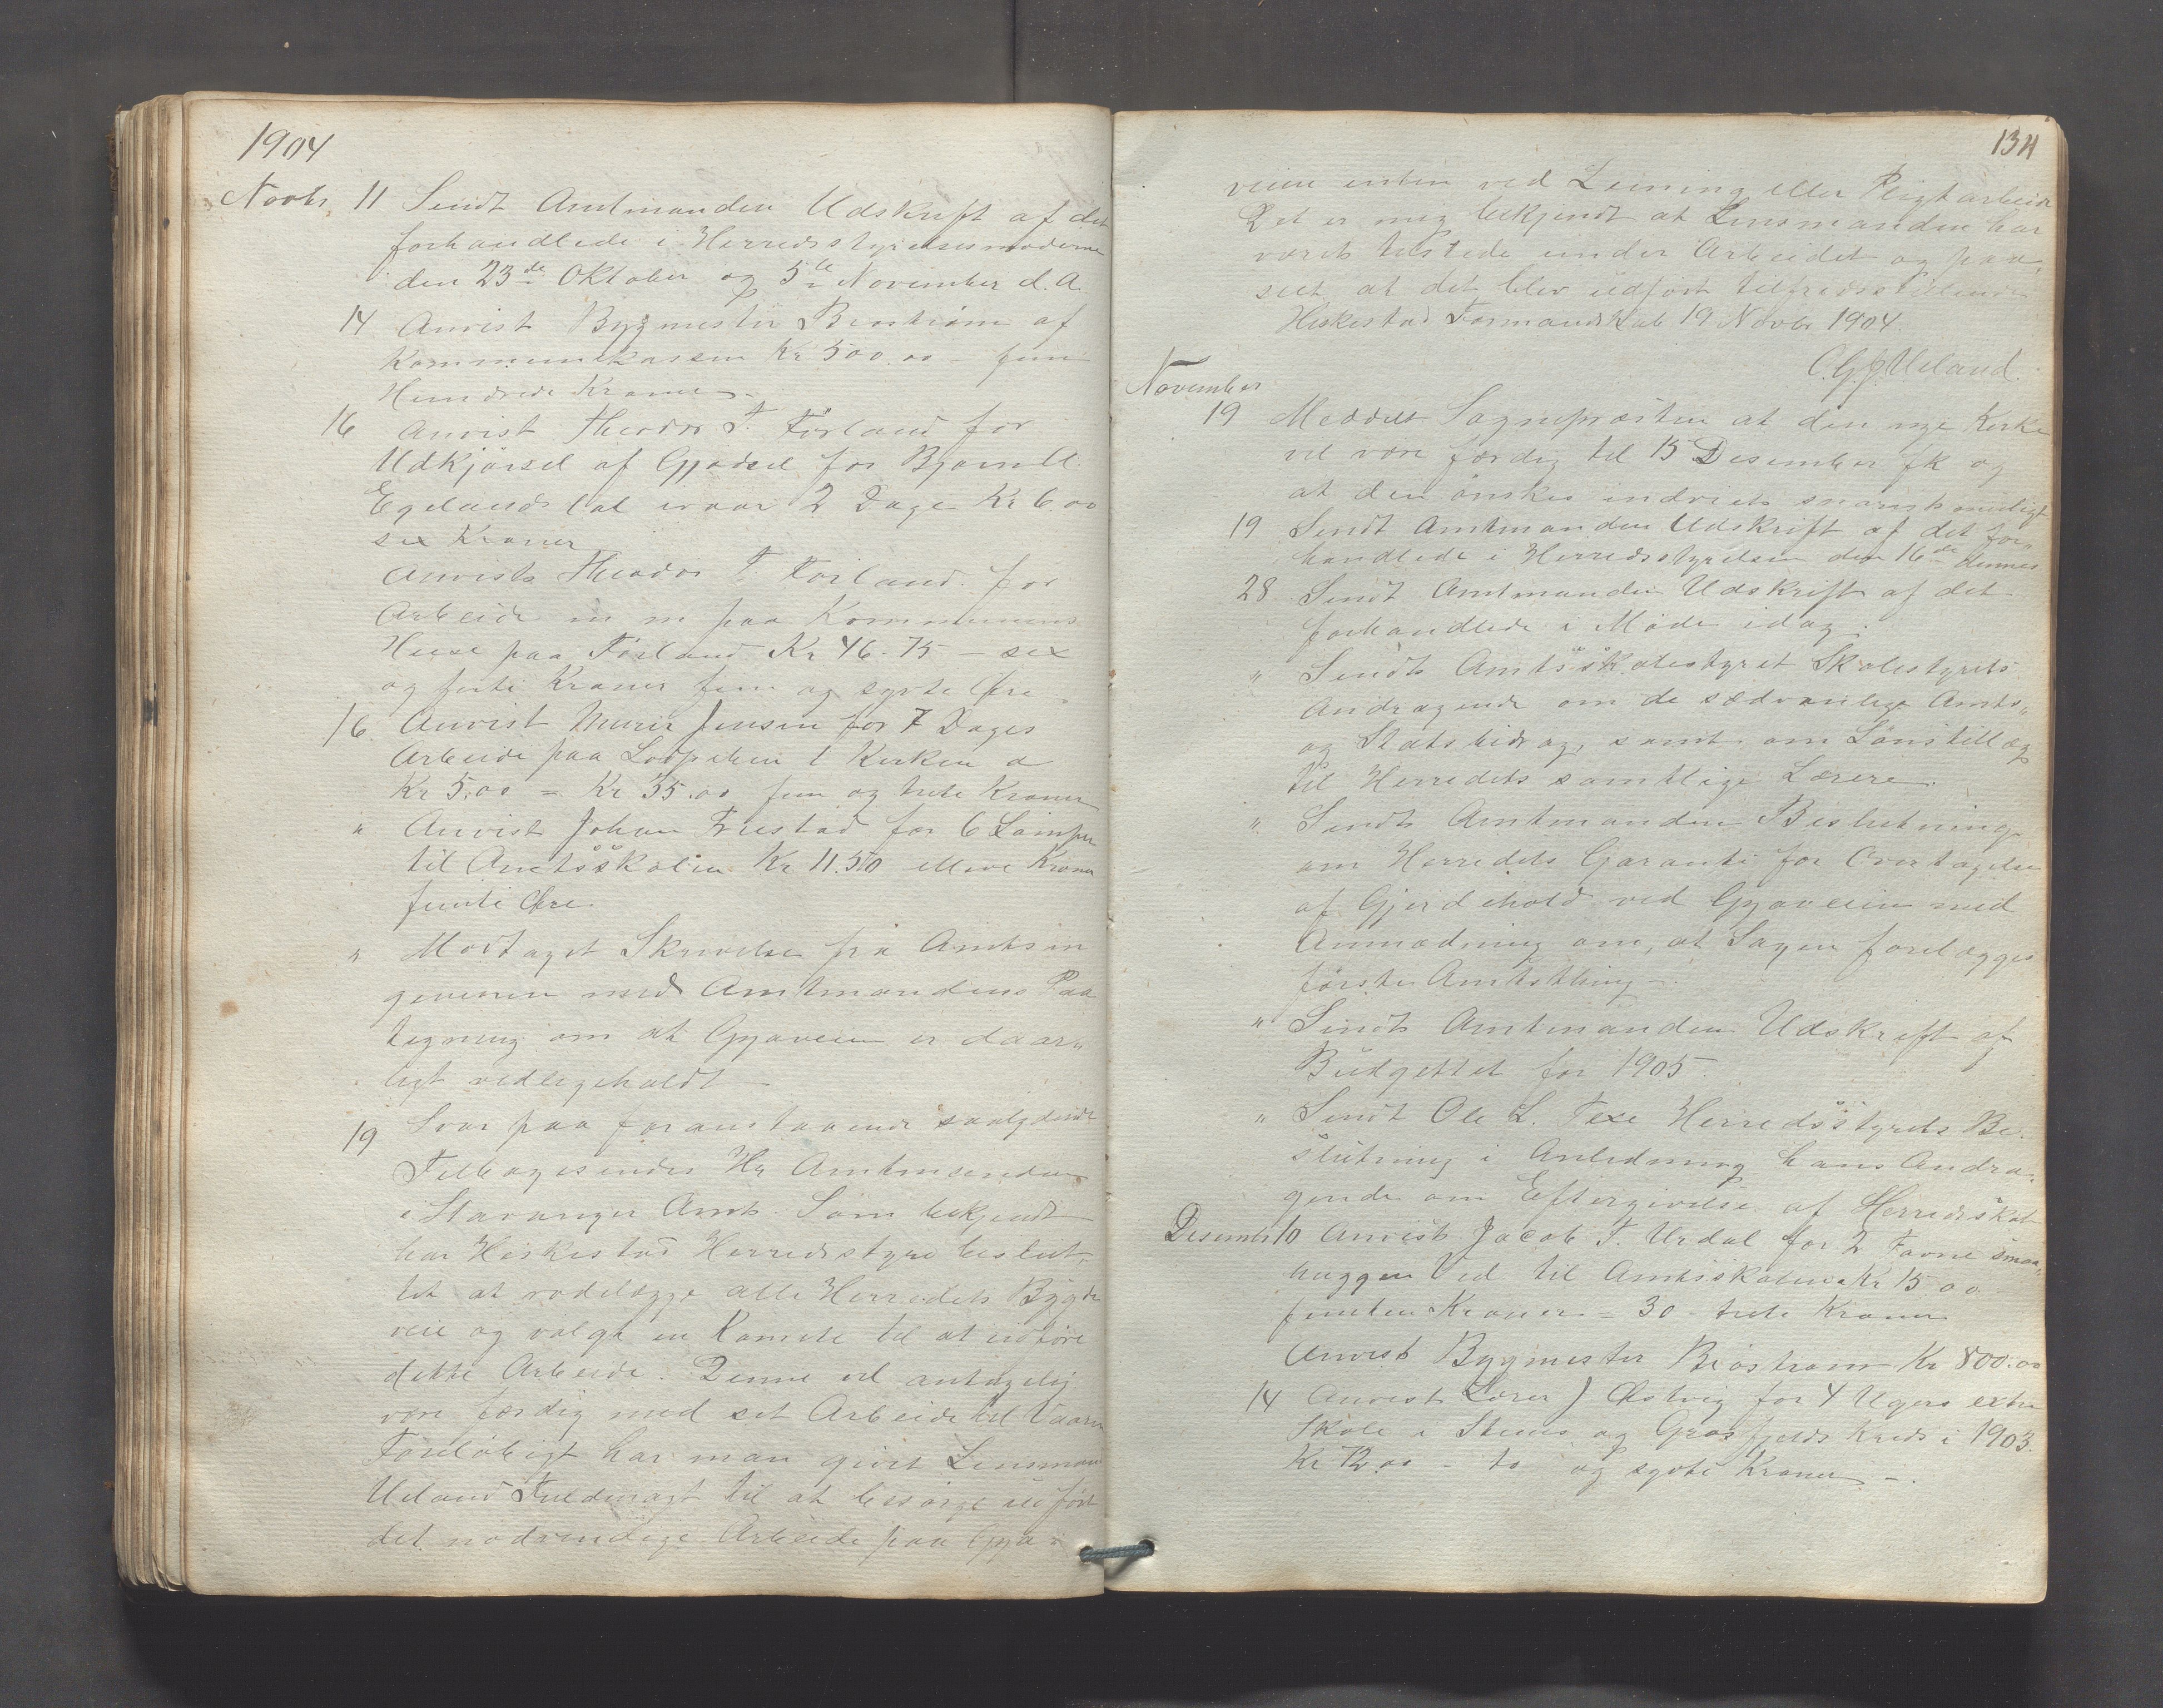 1904
Novbr 11 Sendt Amtmanden Udskrift af det
forhandlede i Herredsstyrelsesmøderne
den 23de Oktober og 5te November d.A.
14 Anvist Bygmester Broström af
Kommunekassen Kr 500.00 – fem
Hundrede Kroner –
16 Anvist Theodor T. Förland for
Udkjörsel af Gjødsel for
Egelandsdal 2 Dage Kr 6.00
sex Kroner
Anvist Theodor T. Förland for
Arbeide m m paa Kommunens
Huse paa Förland Kr 46.75 – sex
og forti Kroner fem og sytti Øre
16 Anvist Murer Jensen for 7 Dages
Arbeide paa i Kirken a
Kr 5.00 = Kr 35.00 fem og treti Kroner
" Anvist Johan Frestad for 6 Lamper
til Amtsskolen Kr 11.50 elleve Kroner
femti Øre
" Modtaget Skrivelse fra Amtsin
geniøren med Amtmandens Paa
tegning om at Gyaveien er daar„
ligt vedligeholdt –
19 Svar paa foranstaaende saalydende
Tilbagesendes Hr Amtmanden
i Stavanger Amt. Som bekjendt
har Heskestad Herredsstyre beslut„
tet at rodelægge alle Herredets Bygde
veie og valgt en Komite til at udföre
dette Arbeide. Denne vil antagelig
være færdig med sit Arbeide til Vaaren
Foreløbigt har man givet Lensmand
Ueland Fuldmagt til at besörge udfört
det nødvendige Arbeide paa Gya„
134
veien enten ved Leining eller Pligtarbeide
Det er mig bekjendt at Lensmanden har
været tilstede under Arbeidet og paa„
seet at det blev udført tilfredsstillende
Heskestad Formandskab 19 Novbr 1904
C.G. Ueland.
November
19 Meddelt Sognepræsten at den nye Kirke
vil være færdig til 15 Desember fk og
at den ønskes indviet snarest muligt
19 Sendt Amtmanden Udskrift af det for„
handlede i Herredsstyrelsen den 16de dennes
28 Sendt Amtmanden Udskrift af det
forhandlede i Møde idag.
" Sendt Amtsskolestyret Skolestyrets
Andragende om de sædvanlige Amts„
og Statsbidrag, samt om Lønstillæg
til Herredets samtlige Lærere.
" Sendt Amtmanden Beslutning
om Herredets Garanti for Overtagelse
af Gjerdehold ved Gyaveien med
Anmodning om, at Sagen forelægges
förste Amtsthing –
" Sendt Amtmanden Udskrift af
Budgettet for 1905.
" Sendt Ole L. Texe Herredsstyrets Be„
slutning i Anledning hans Andra„
gende om Eftergivelse af Herredsskat
Desembr 10 Anvist Jacob T. Urdal for 2 Favne smaa„
huggen Ved til Amtsskolen a Kr 15.00
femten Kroner = 30 – treti Kroner
Anvist Bygmester Broström Kr 800.00
14 Anvist Lærer J Østvig for 4 Ugers extra
Skole i og Grøsfjelds Kreds i 1903.
Kr 72.00 – to og sytti Kroner –.